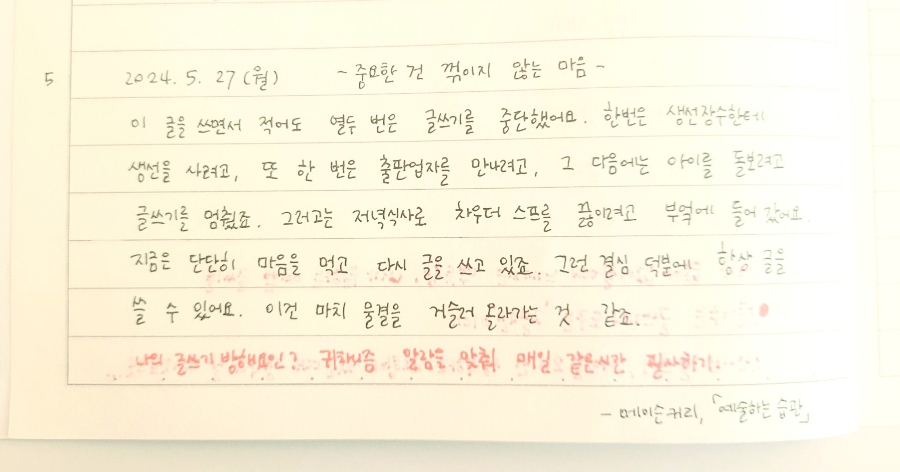 5 2024. 5. 27 (월) ~ 중요한 건 꺾이지 않는 마음 ~
이 글을 쓰면서 적어도 열두 번은 글쓰기를 중단했어요. 한번은 생선장수한테
생선을 사려고, 또 한 번은 출판업자를 만나려고, 그 다음에는 아이를 돌보려고
글쓰기를 멈췄죠. 그러고는 저녁식사로 차우더 스프를 끓이려고 부엌에 들어 갔어요.
지금은 단단히 마음을 먹고 다시 글을 쓰고 있죠. 그런 결심 덕분에 항상 글을
쓸 수 있어요. 이건 마치 물결을 거슬러 올라가는 것 같죠.
나의 글쓰기 방해요인? 귀차니즘 알람을 맞춰 매일 같은시간 필사하기.
- 메이슨커리, 「예술하는 습관」